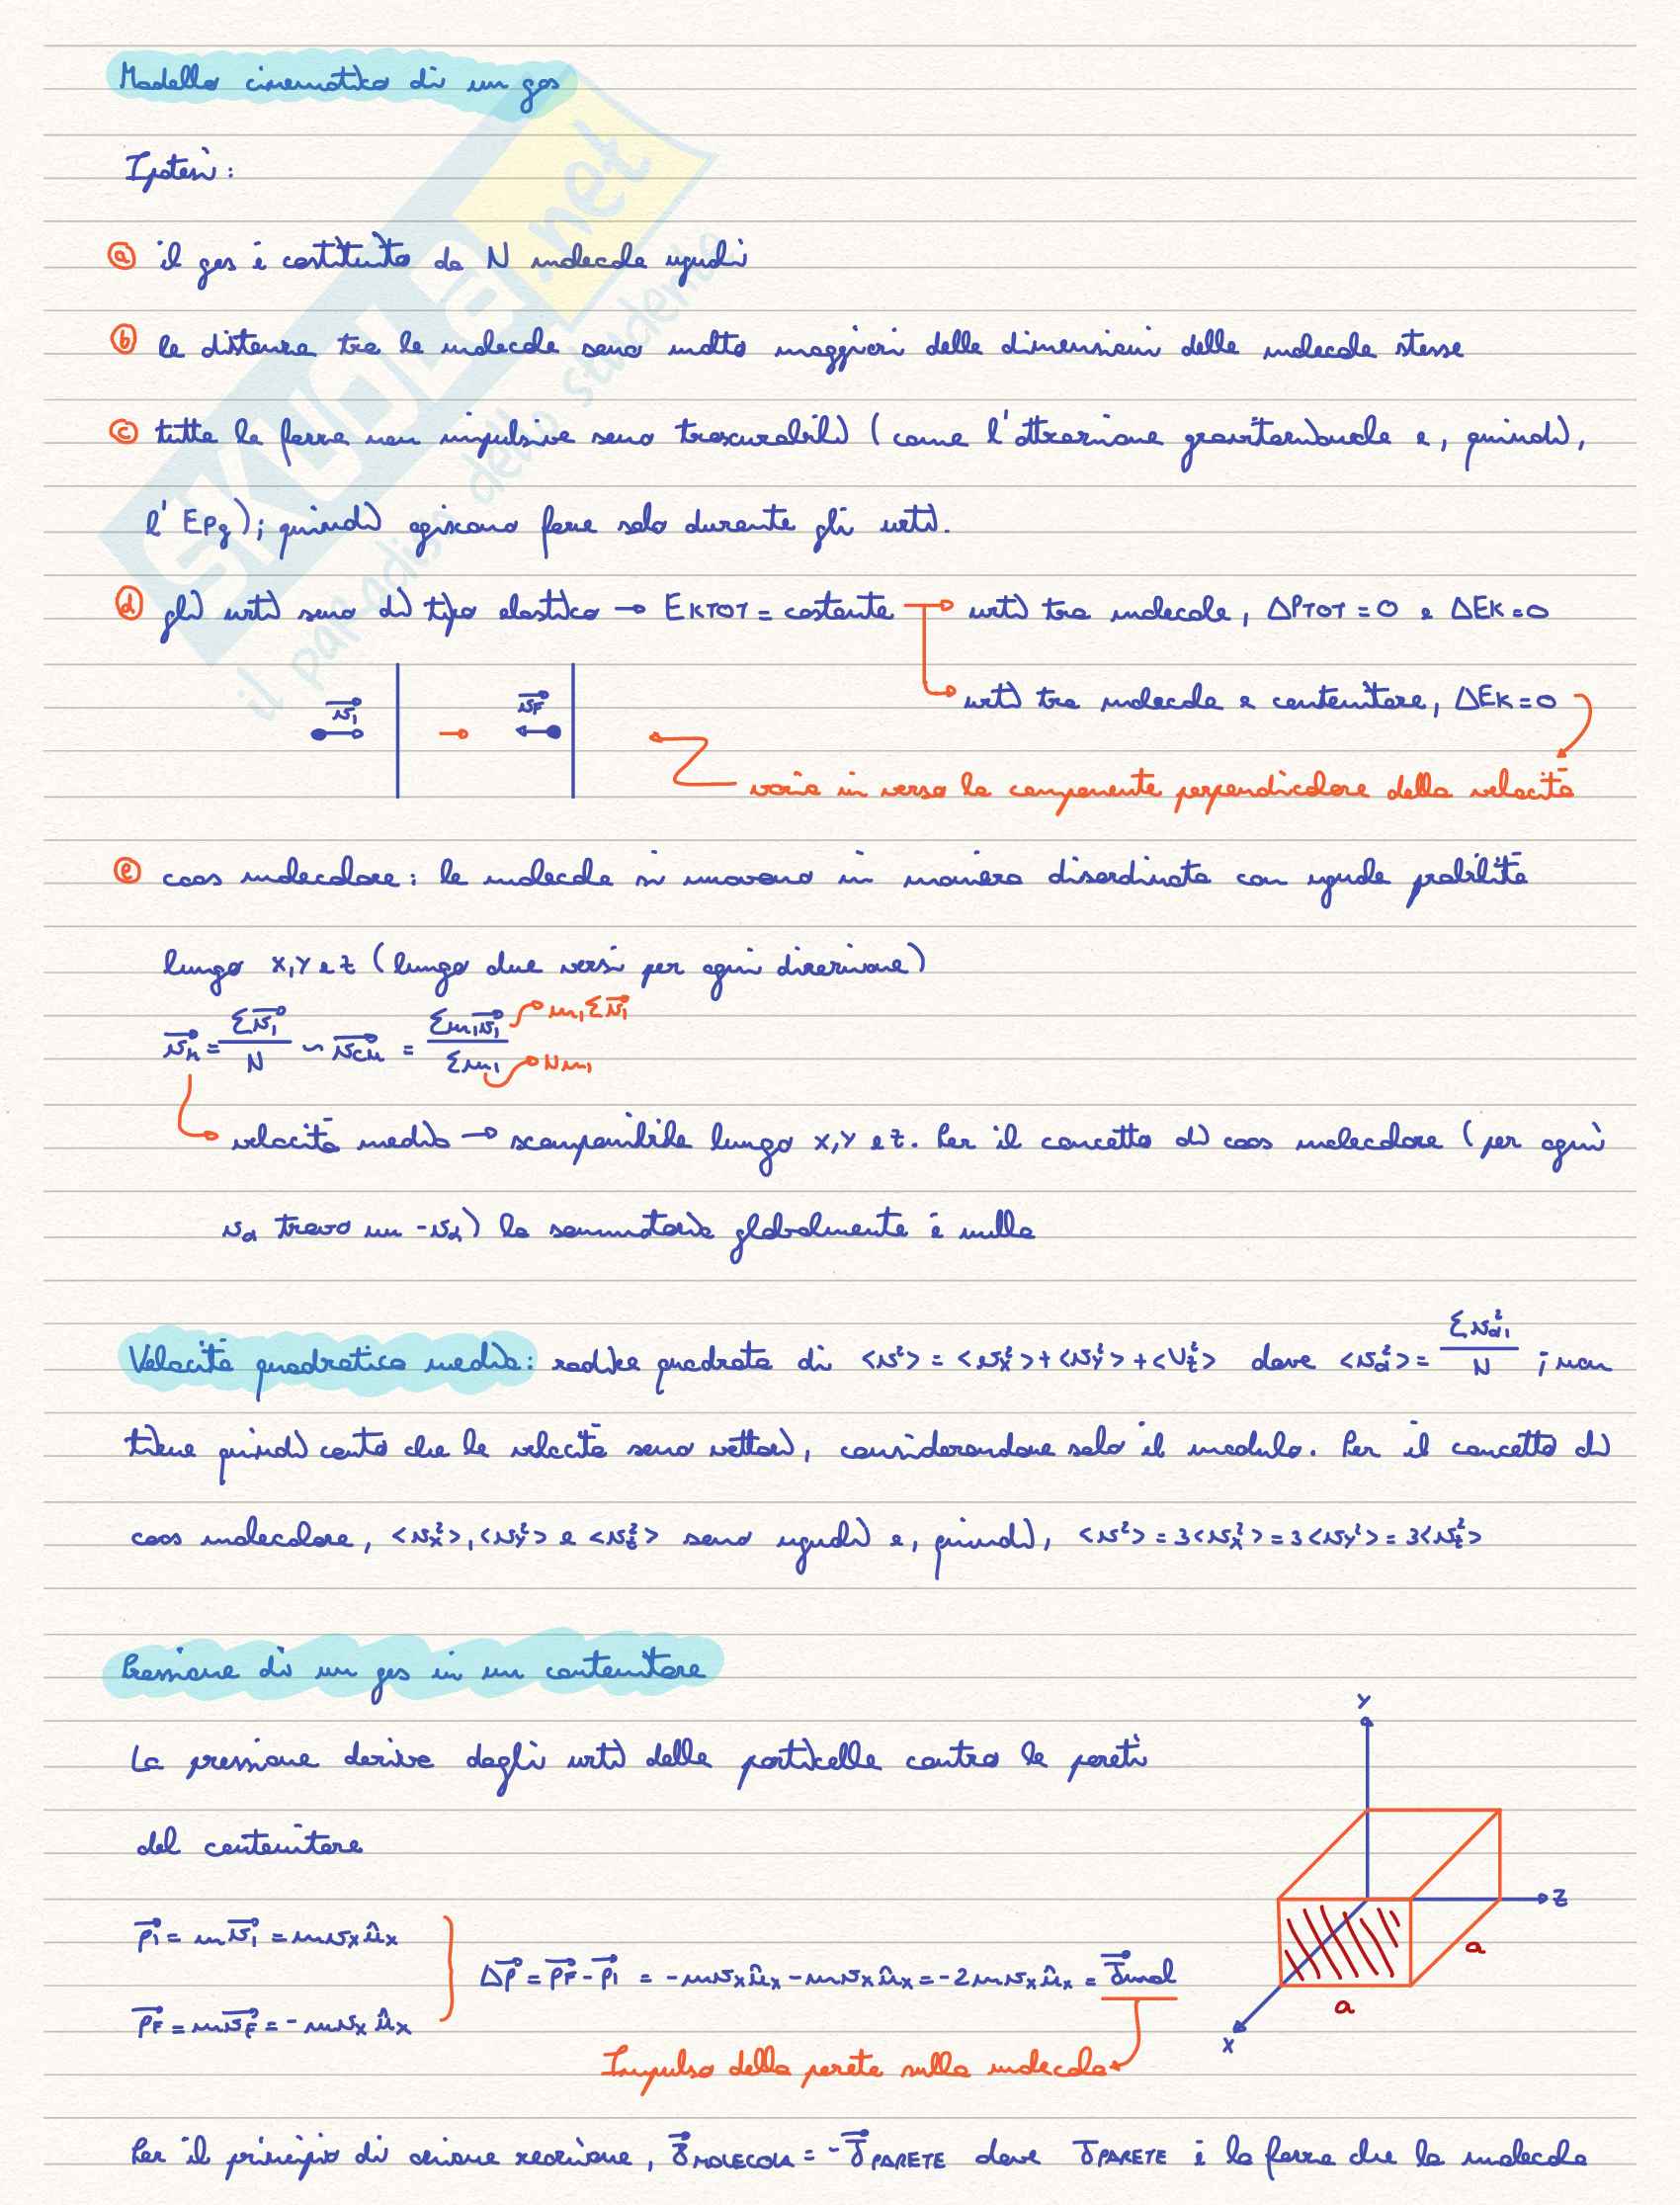 Modello cinematico di un gas
Ipotesi:
ⓐ il gas è costituito da N molecole uguali
ⓑ le distanze tra le molecole sono molto maggiori delle dimensioni delle molecole stesse
ⓒ tutte le forze non impulsive sono trascurabili (come l'attrazione gravitazionale e, quindi,
l'EPg); quindi agiscono forze solo durante gli urti.
ⓓ gli urti sono di tipo elastico → EKTOT = costante → urti tra molecole, ΔPTOT = 0 e ΔEK = 0
→ urti tra molecole e contenitore, ΔEK = 0
v⃗i → v⃗F
varia in verso la componente perpendicolare della velocità
ⓔ caos molecolare: le molecole si muovono in maniera disordinata con uguale probabilità
lungo x, y e z (lungo due versi per ogni direzione)
v⃗m = Σv⃗i / N ∼ v⃗CM = Σmiv⃗i / Σmi → mi Σv⃗i → Nmi
velocità media → scomponibile lungo x, y e z. Per il concetto di caos molecolare (per ogni
vα trovo un -vα) la sommatoria globalmente è nulla
Velocità quadratica media: radice quadrata di <v²> = <vx²> + <vy²> + <vz²> dove <vα²> = Σvαi² / N ; non
tiene quindi conto che le velocità sono vettori, considerandone solo il modulo. Per il concetto di
caos molecolare, <vx²>, <vy²> e <vz²> sono uguali e, quindi, <v²> = 3<vx²> = 3<vy²> = 3<vz²>
Pressione di un gas in un contenitore
La pressione deriva dagli urti delle particelle contro le pareti
del contenitore
y
z
a
a
x
p⃗i = mv⃗i = mvx ûx
Δp⃗ = p⃗F - p⃗i = -mvx ûx - mvx ûx = -2mvx ûx = J⃗mol
p⃗F = mv⃗F = -mvx ûx
Impulso della parete sulla molecola
Per il principio di azione reazione, J⃗MOLECOLA = -J⃗PARETE dove JPARETE è la forza che la molecola
SKUOLA.net
il paradiso dello studente